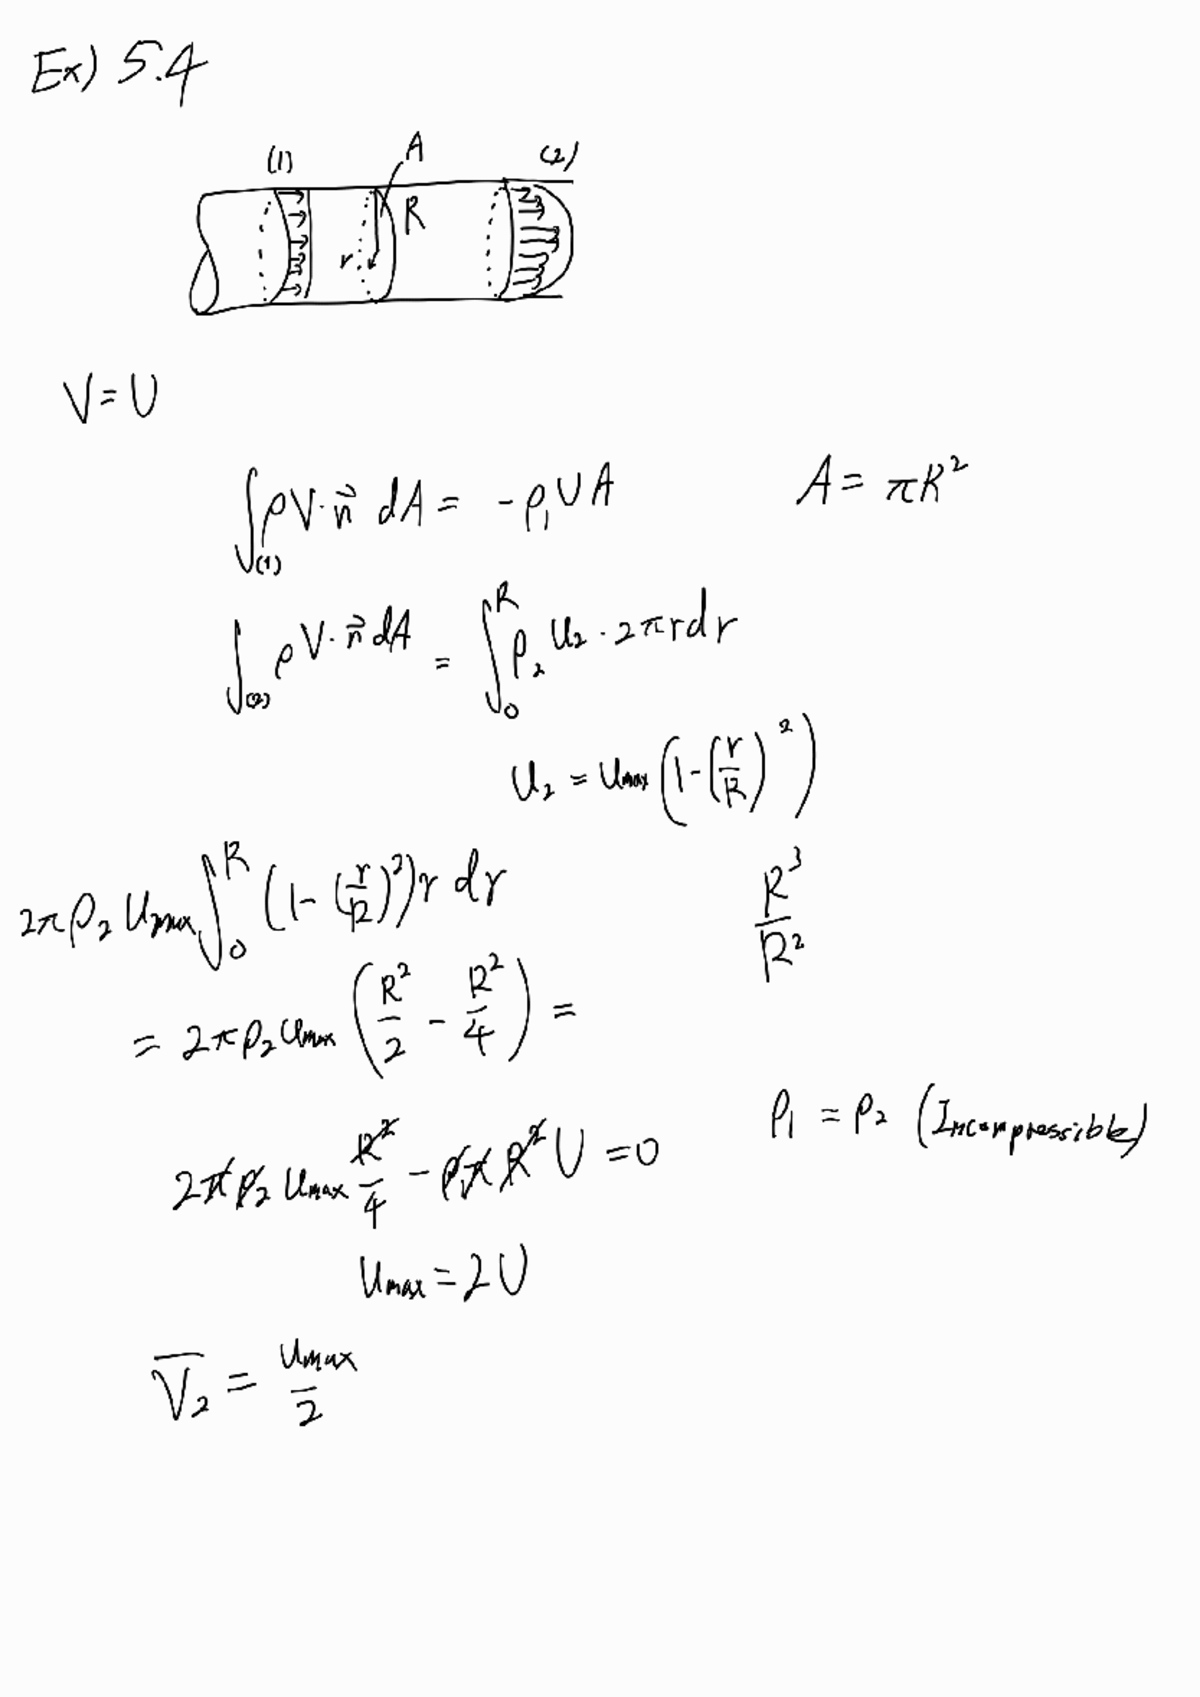 Ex) 5.4
(1) A (2)
R
r
V = U
∫_(1) ρV·n⃗ dA = -ρ₁UA A = πR²
∫_(2) ρV·n⃗ dA = ∫₀^R ρ₂ u₂ · 2πr dr
u₂ = u_max (1 - (r/R)²)
2πρ₂ u_max ∫₀^R (1 - (r/R)²) r dr R³/R²
= 2πρ₂ u_max (R²/2 - R²/4) =
ρ₁ = ρ₂ (Incompressible)
2πρ₂ u_max R²/4 - ρ₁πR²U = 0
u_max = 2U
V̅₂ = u_max/2